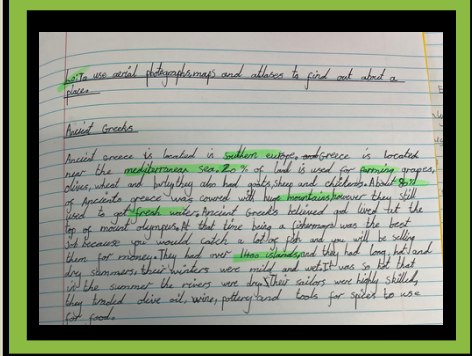 L.o: To use aerial photographs, maps and atlases to find out about a
place.
Ancient Greeks.
Ancient greece is located in southern europe. and Greece is located
near the mediterranean sea. 20% of land is used for farming grapes,
olives, wheat and barley they also had goats, sheep and chickens. About 80%
of Ancients greece was covred with huge mountains, however they still
used to get fresh water. Ancient Greeks believed god lived tit the
top of mount olympus. At that time being a fisherman was the best
job because you would catch a lot of fish and you will be selling
them for money. They had over 1400 islands, and they had long, hot and
dry summers, their winters were mild and wet. It was so hot that
in the summer the rivers were dry. Their sailors were highly skilled,
they traded olive oil, wine, pottery and tools for spices to use
for food.